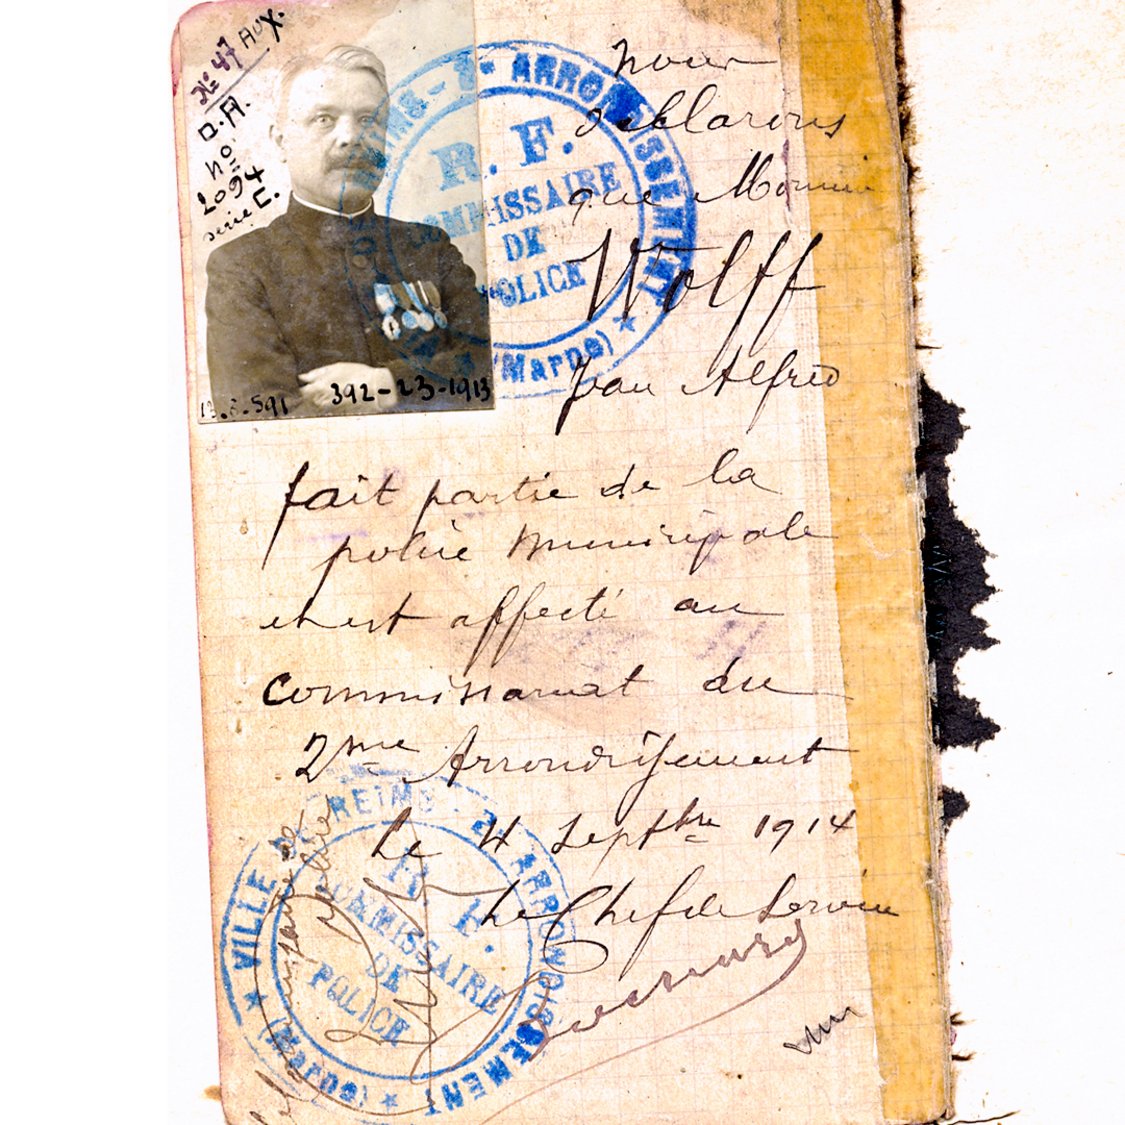 No 47 AUX.
D.A.
no
2094
serie C.
392-23-1913
VILLE DE REIMS - 2e ARRONDISSEMENT
R. F.
COMMISSAIRE
DE
POLICE
(Marne)
Nous
déclarons
que Monsieur
Wolff
Jean Alfred
fait partie de la
police Municipale
et est affecté au
commissariat du
2me Arrondissement
Le 4 Septbre 1914
Le Chef de Service
VILLE DE REIMS - 2e ARRONDISSEMENT
R. F.
COMMISSAIRE
DE
POLICE
(Marne)